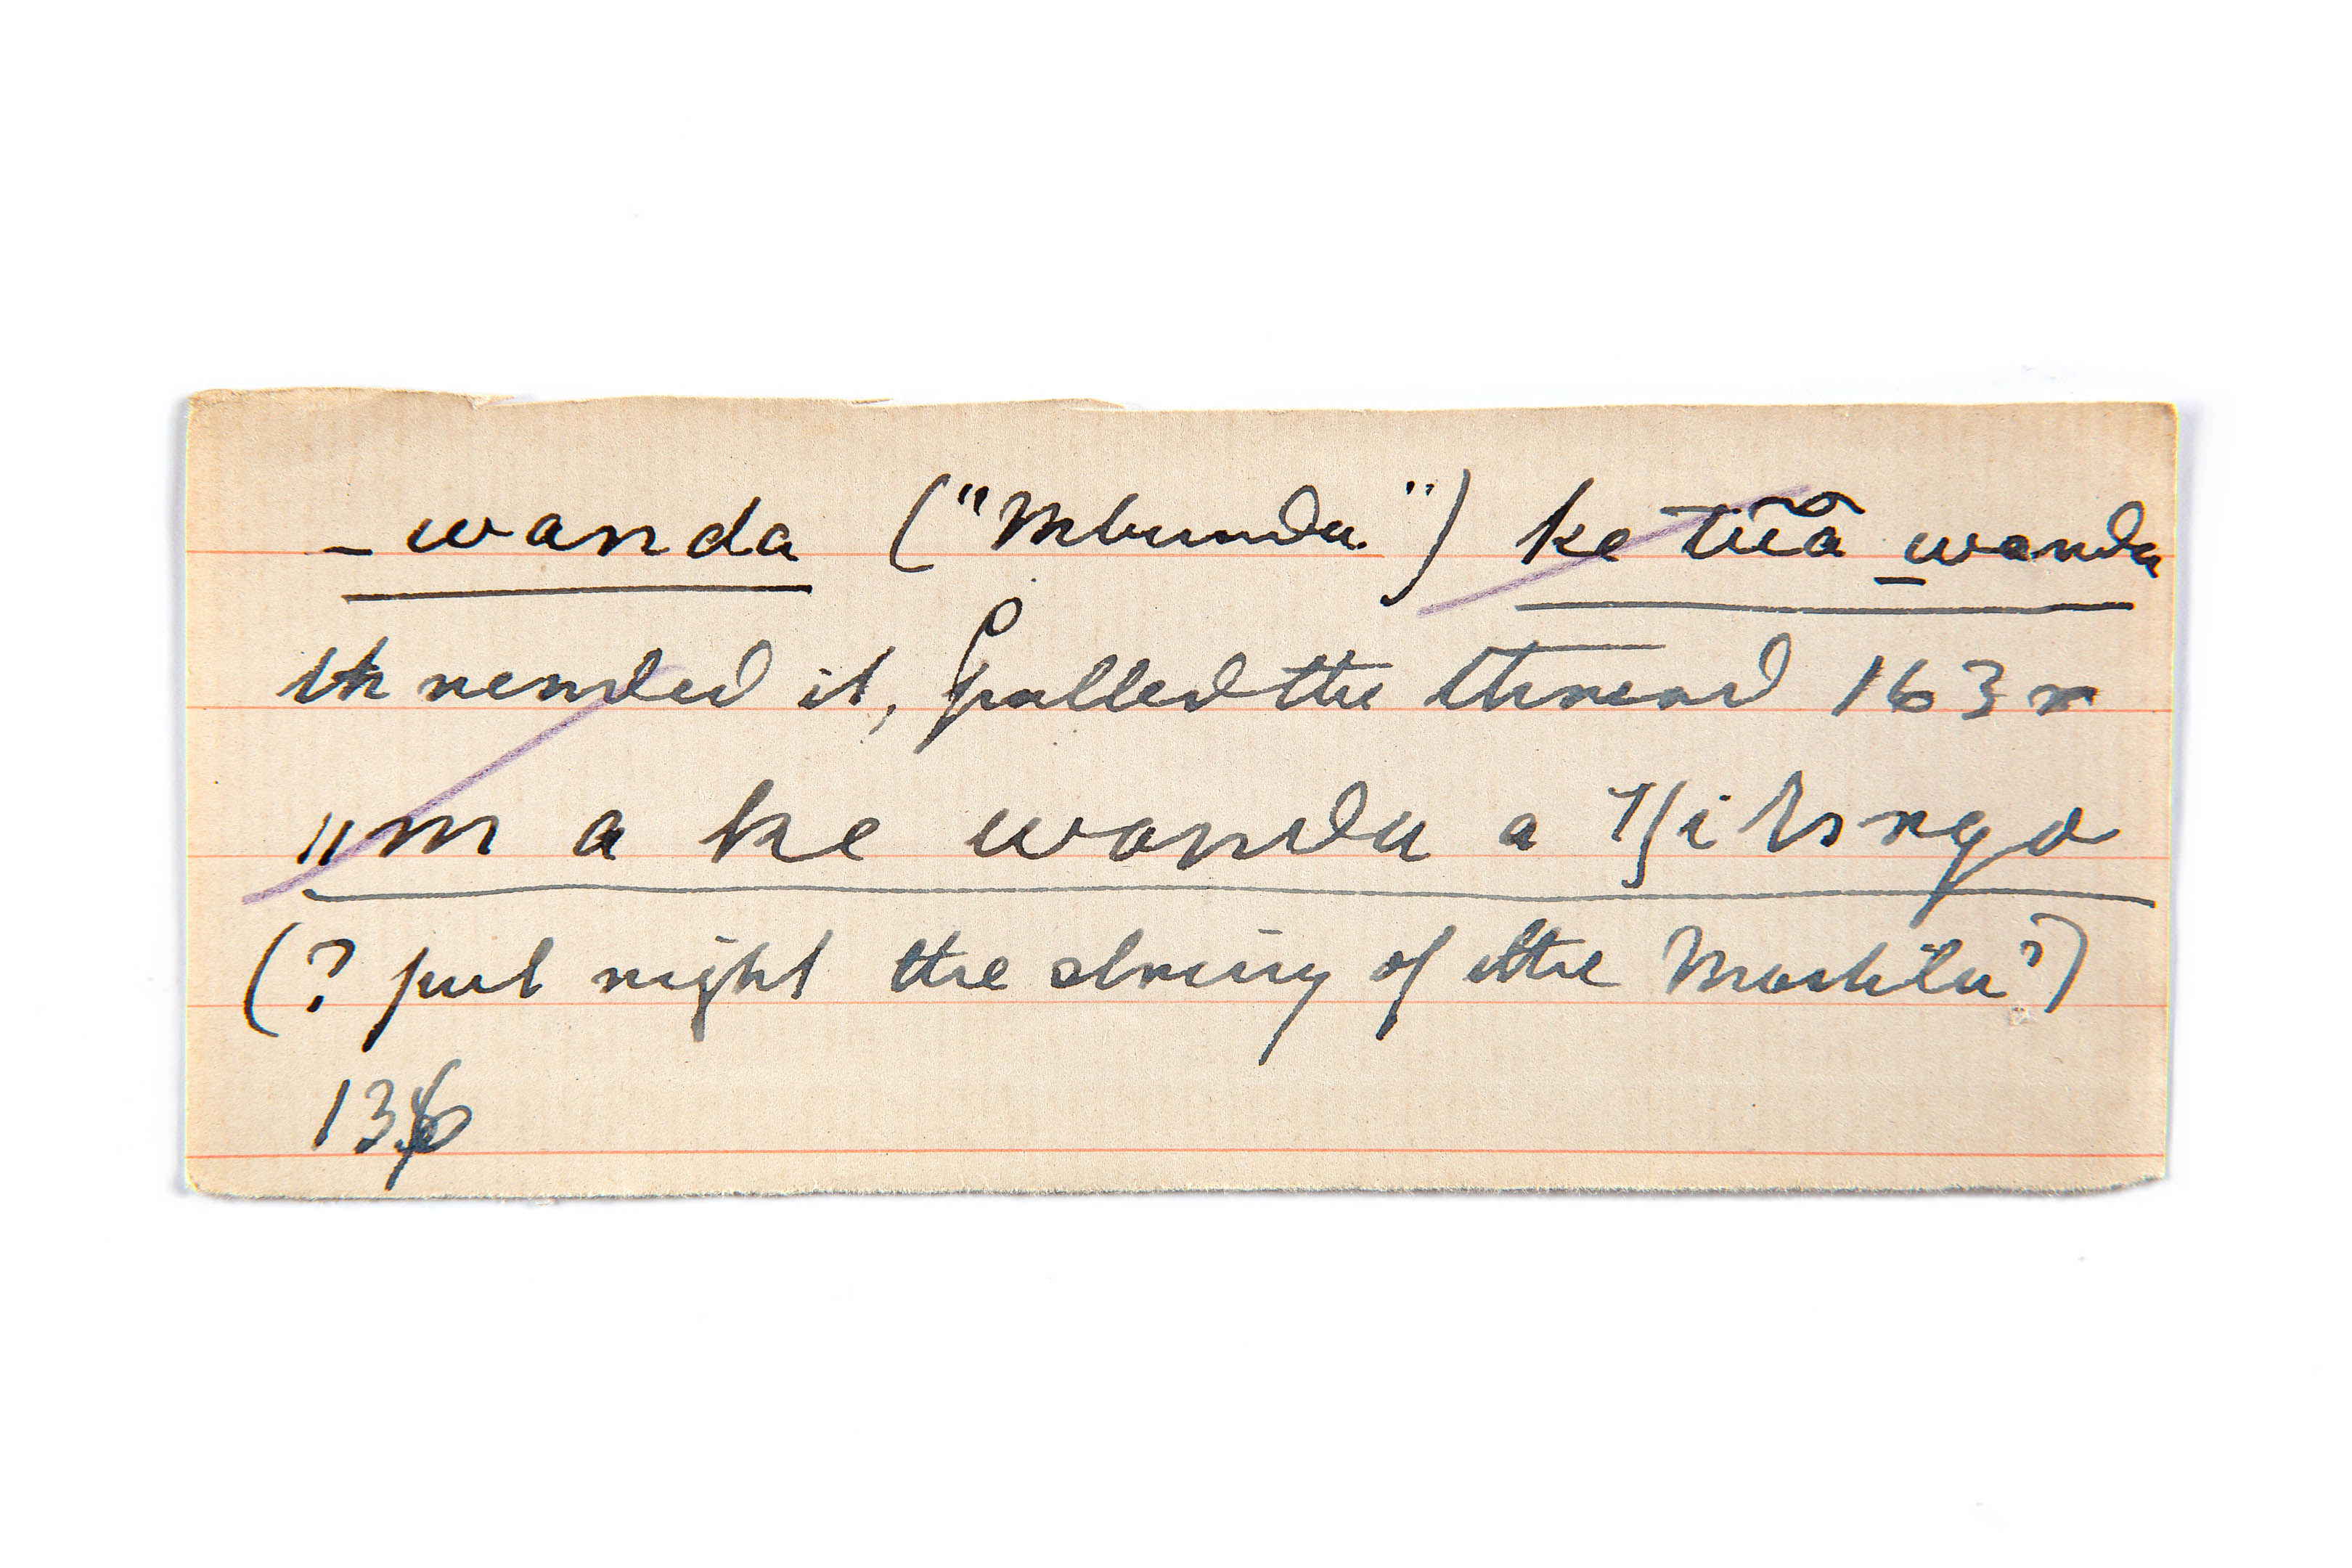 _ wanda ("Mbunda") ke tũã _wanda
threaded it, pulled the thread 163 r
"m a ke wanda a
(? put right the string of the Moshila?)
136